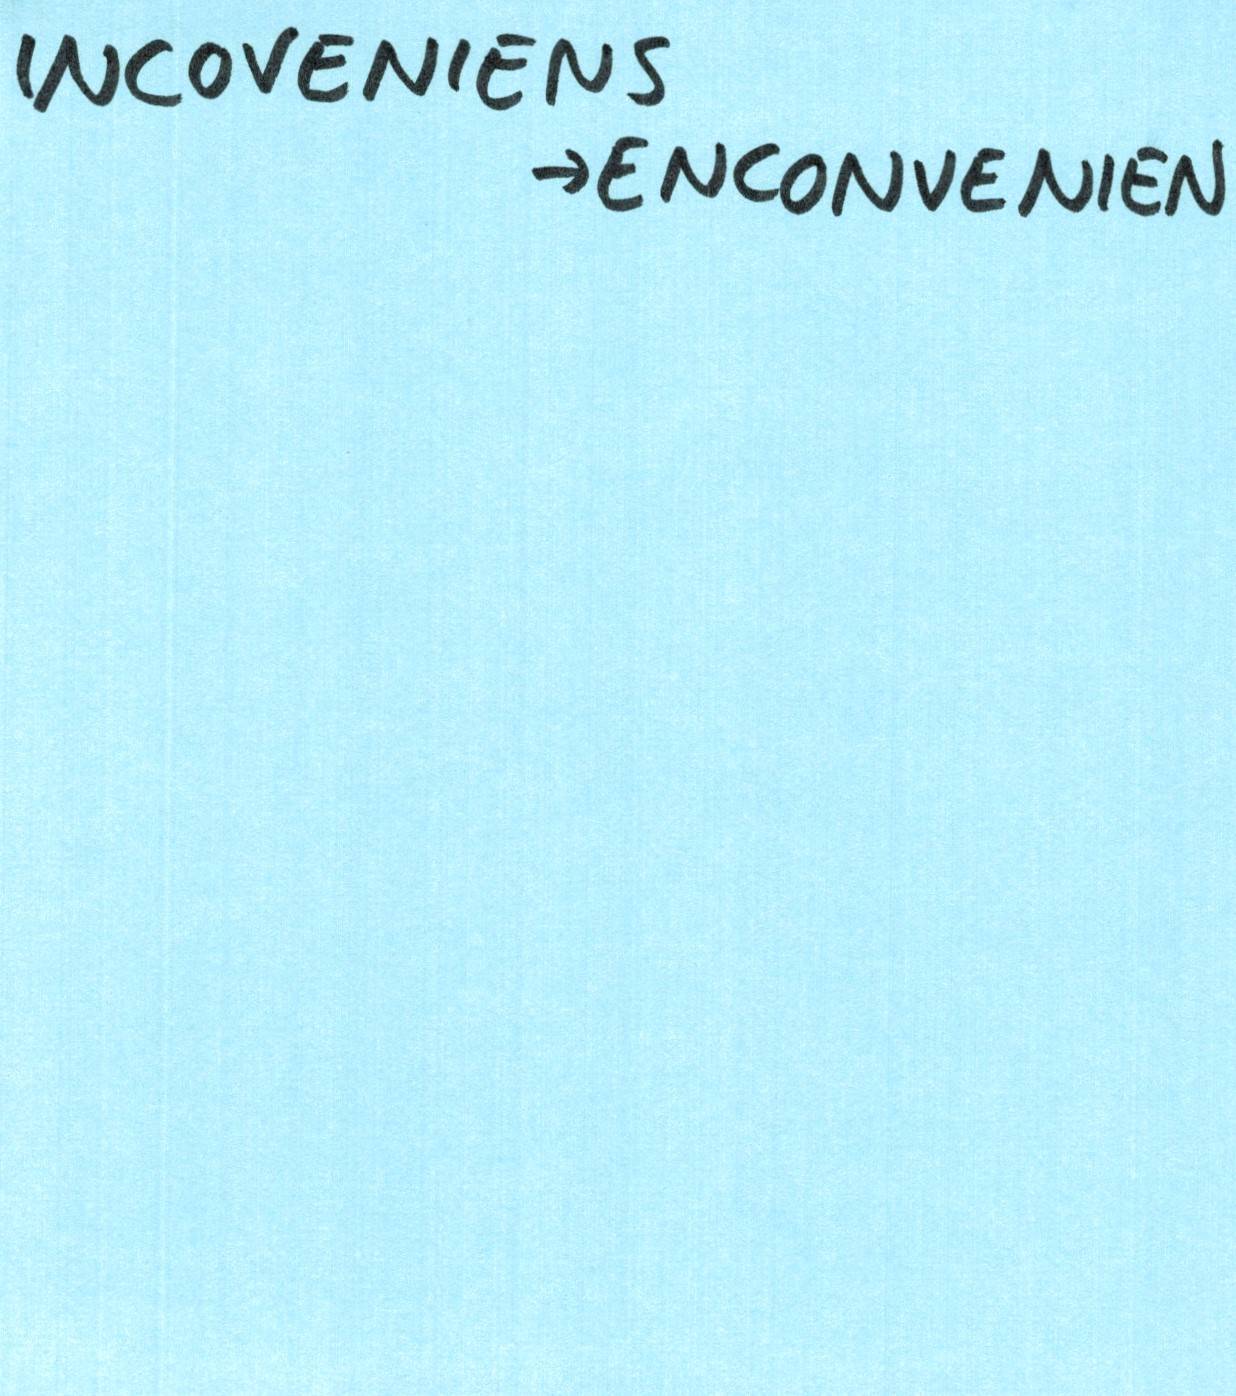 INCOVENIENS
→ENCONVENIEN